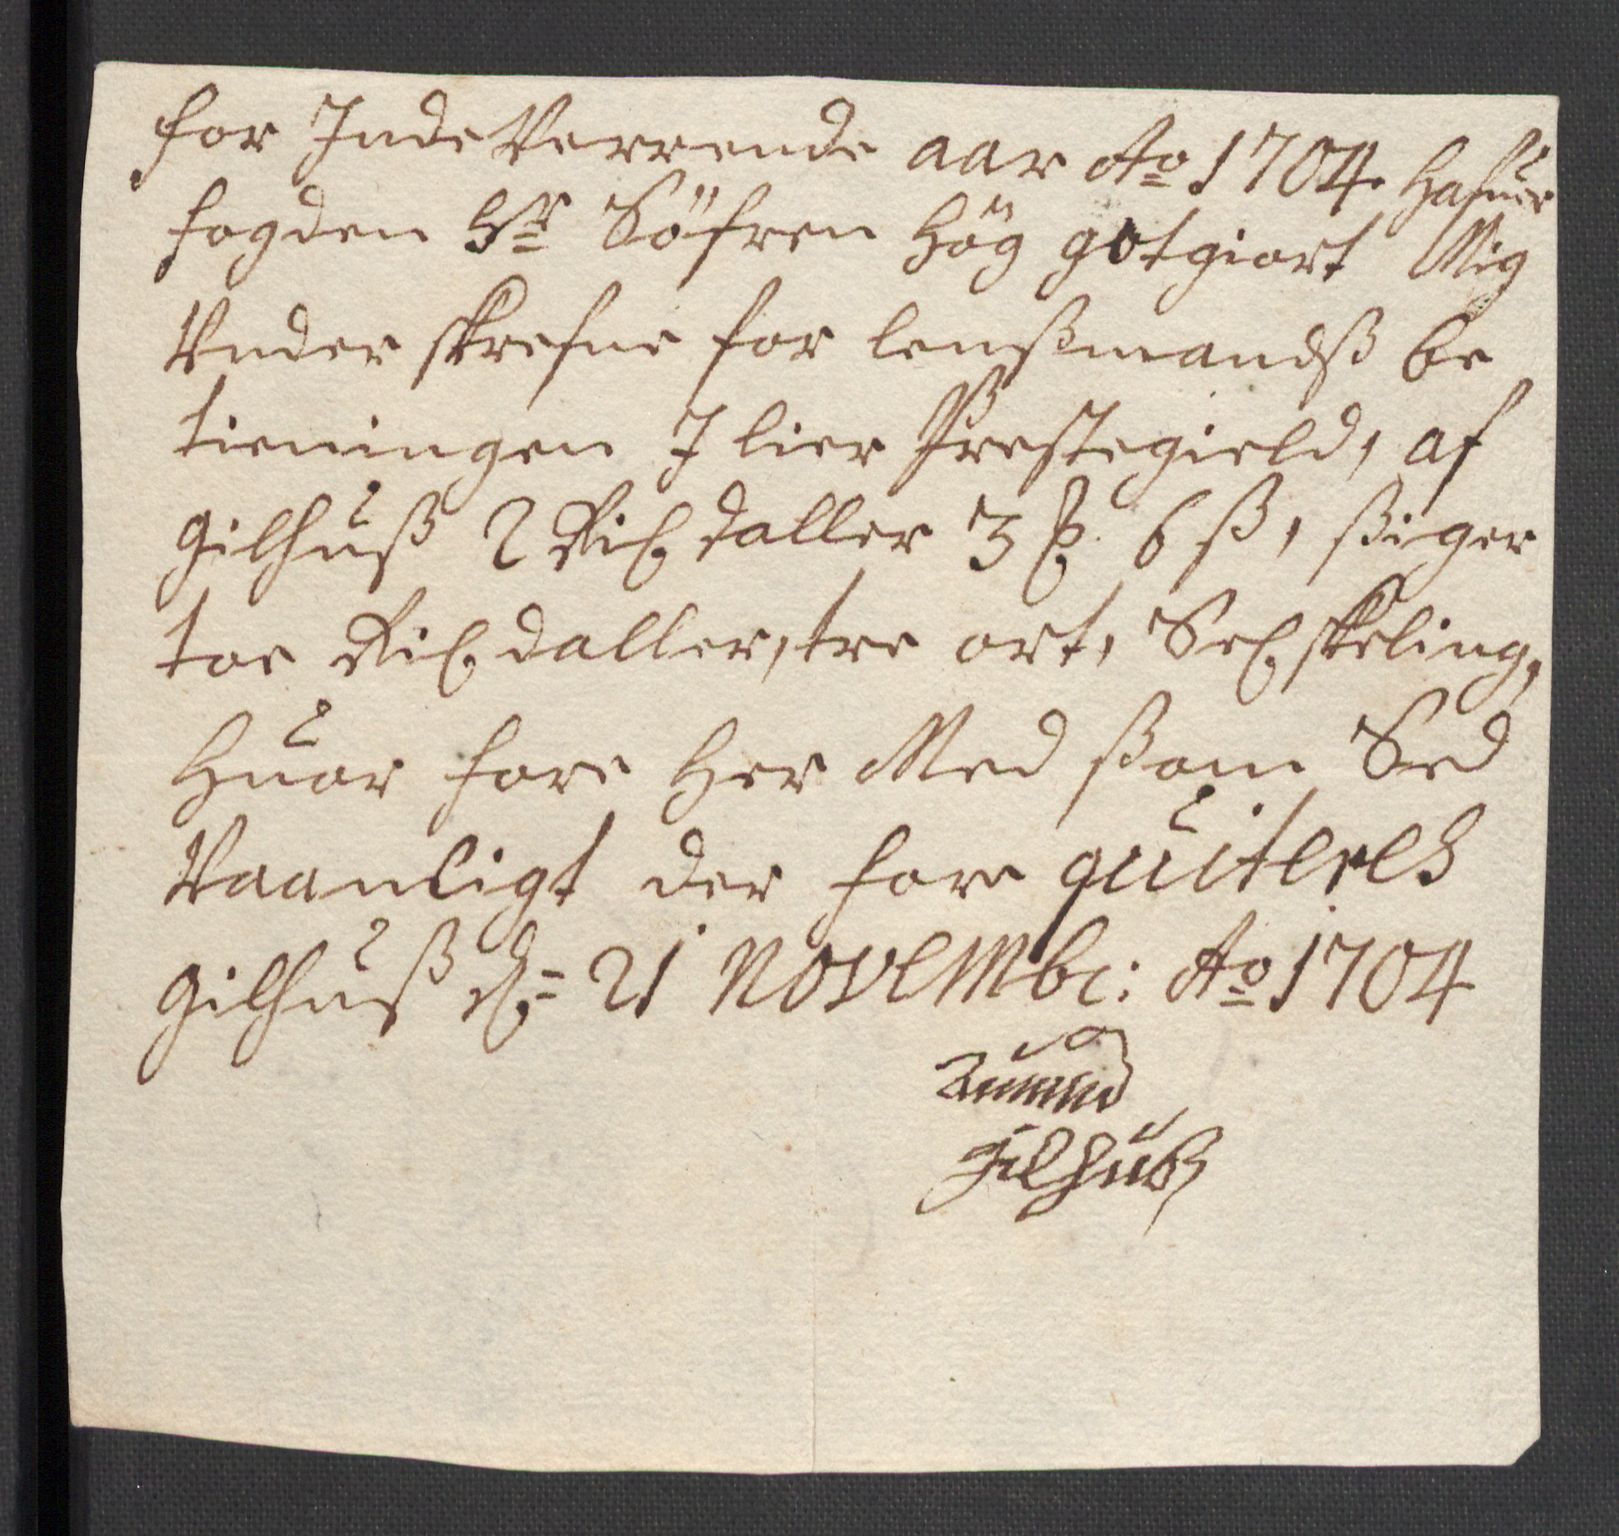 for Inde Verrende aar Ao 1704. Hafuer
fogden Sr Söfren Hög gotgiort Mig
Vnder skrefne for lenßmandß be
tieningen I lier Prestegield, af
gilhuß 2 Rix daller 3 ƶ. 6 ß, ßiger
toe Rix daller, tre ort, Sex skeling,
Huor fore Her Med ßom Sed
Vaanligt der fore quiteres
gilhuß d. 21 Novembr: Ao 1704
gilhuß